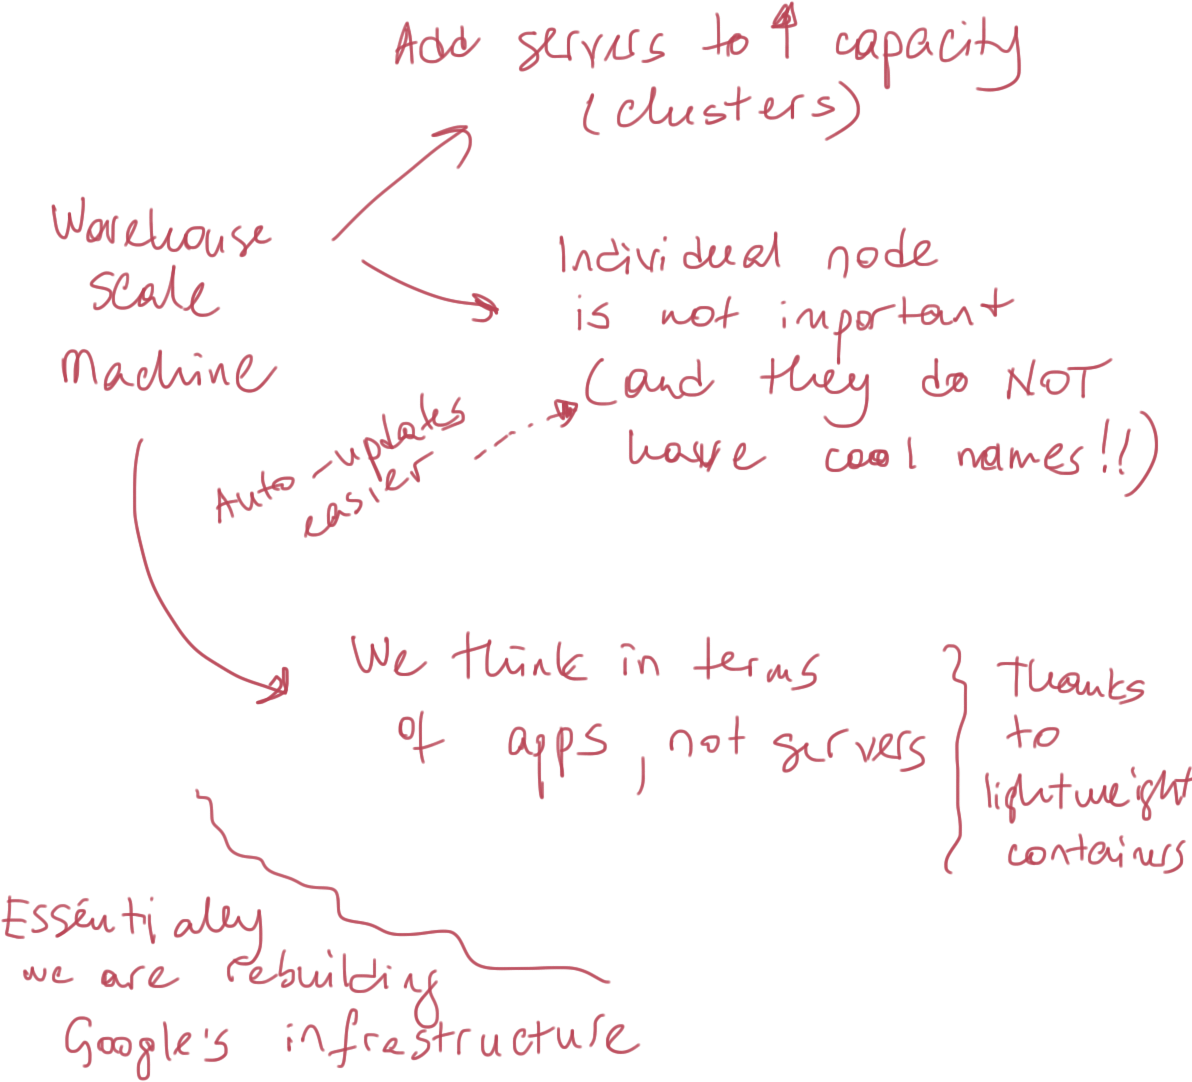 Add servers to ↑ capacity
(clusters)
Warehouse
scale
Machine
Individual node
is not important
(and they do NOT
have cool names!!)
Auto-updates
easier
We think in terms
of apps, not servers
Thanks
to
lightweight
containers
Essentially
we are rebuilding
Google's infrastructure